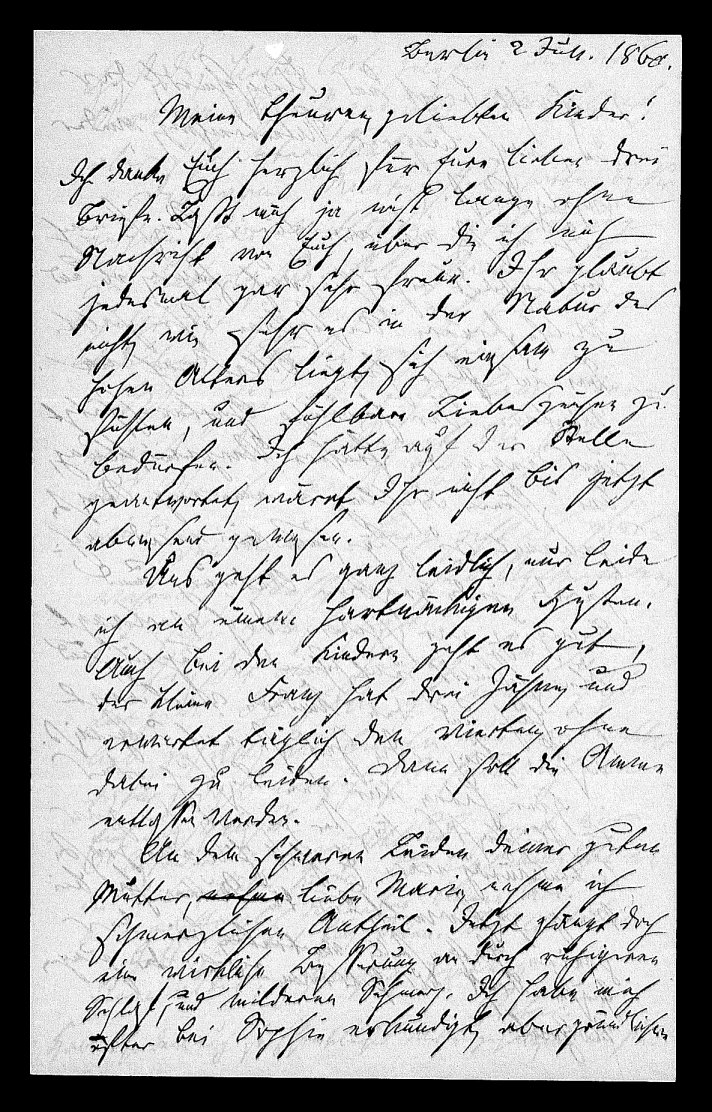 Berlin 2 Juli. 1868.
Meine theuren, geliebten Kinder!
Ich danke Euch herzlich für Eure lieben drei
Briefe. Laßt mich ja nicht lange ohne
Nachricht von Euch, über die ich mich
jedesmal gar sehr freue. Ihr glaubt
nicht, wie sehr es in der Natur des
hohen Alters liegt, sich einsam zu
fühlen, und fühlbare Liebeszeichen zu
bedürfen. Ich hätte auf der Stelle
geantwortet, wäret Ihr nicht bis jetzt
abwesend gewesen.
Uns geht es ganz leidlich, nur leide
ich an einem hartnäckigen Husten.
Auch bei den Kindern geht es gut,
der kleine Franz hat drei Zähne, und
erwartet täglich den vierten, ohne
dabei zu leiden. Dann soll die Amme
entlassen werden.
An dem schweren Leiden deiner guten
Mutter, liebe Marie, nehme ich
schmerzlichen Antheil. Jetzt fängt doch
eine wirkliche Besserung an durch ruhigeren
Schlaf, und milderen Schmerz. Ich habe mich
öfter bei Sophie erkundigt, aber